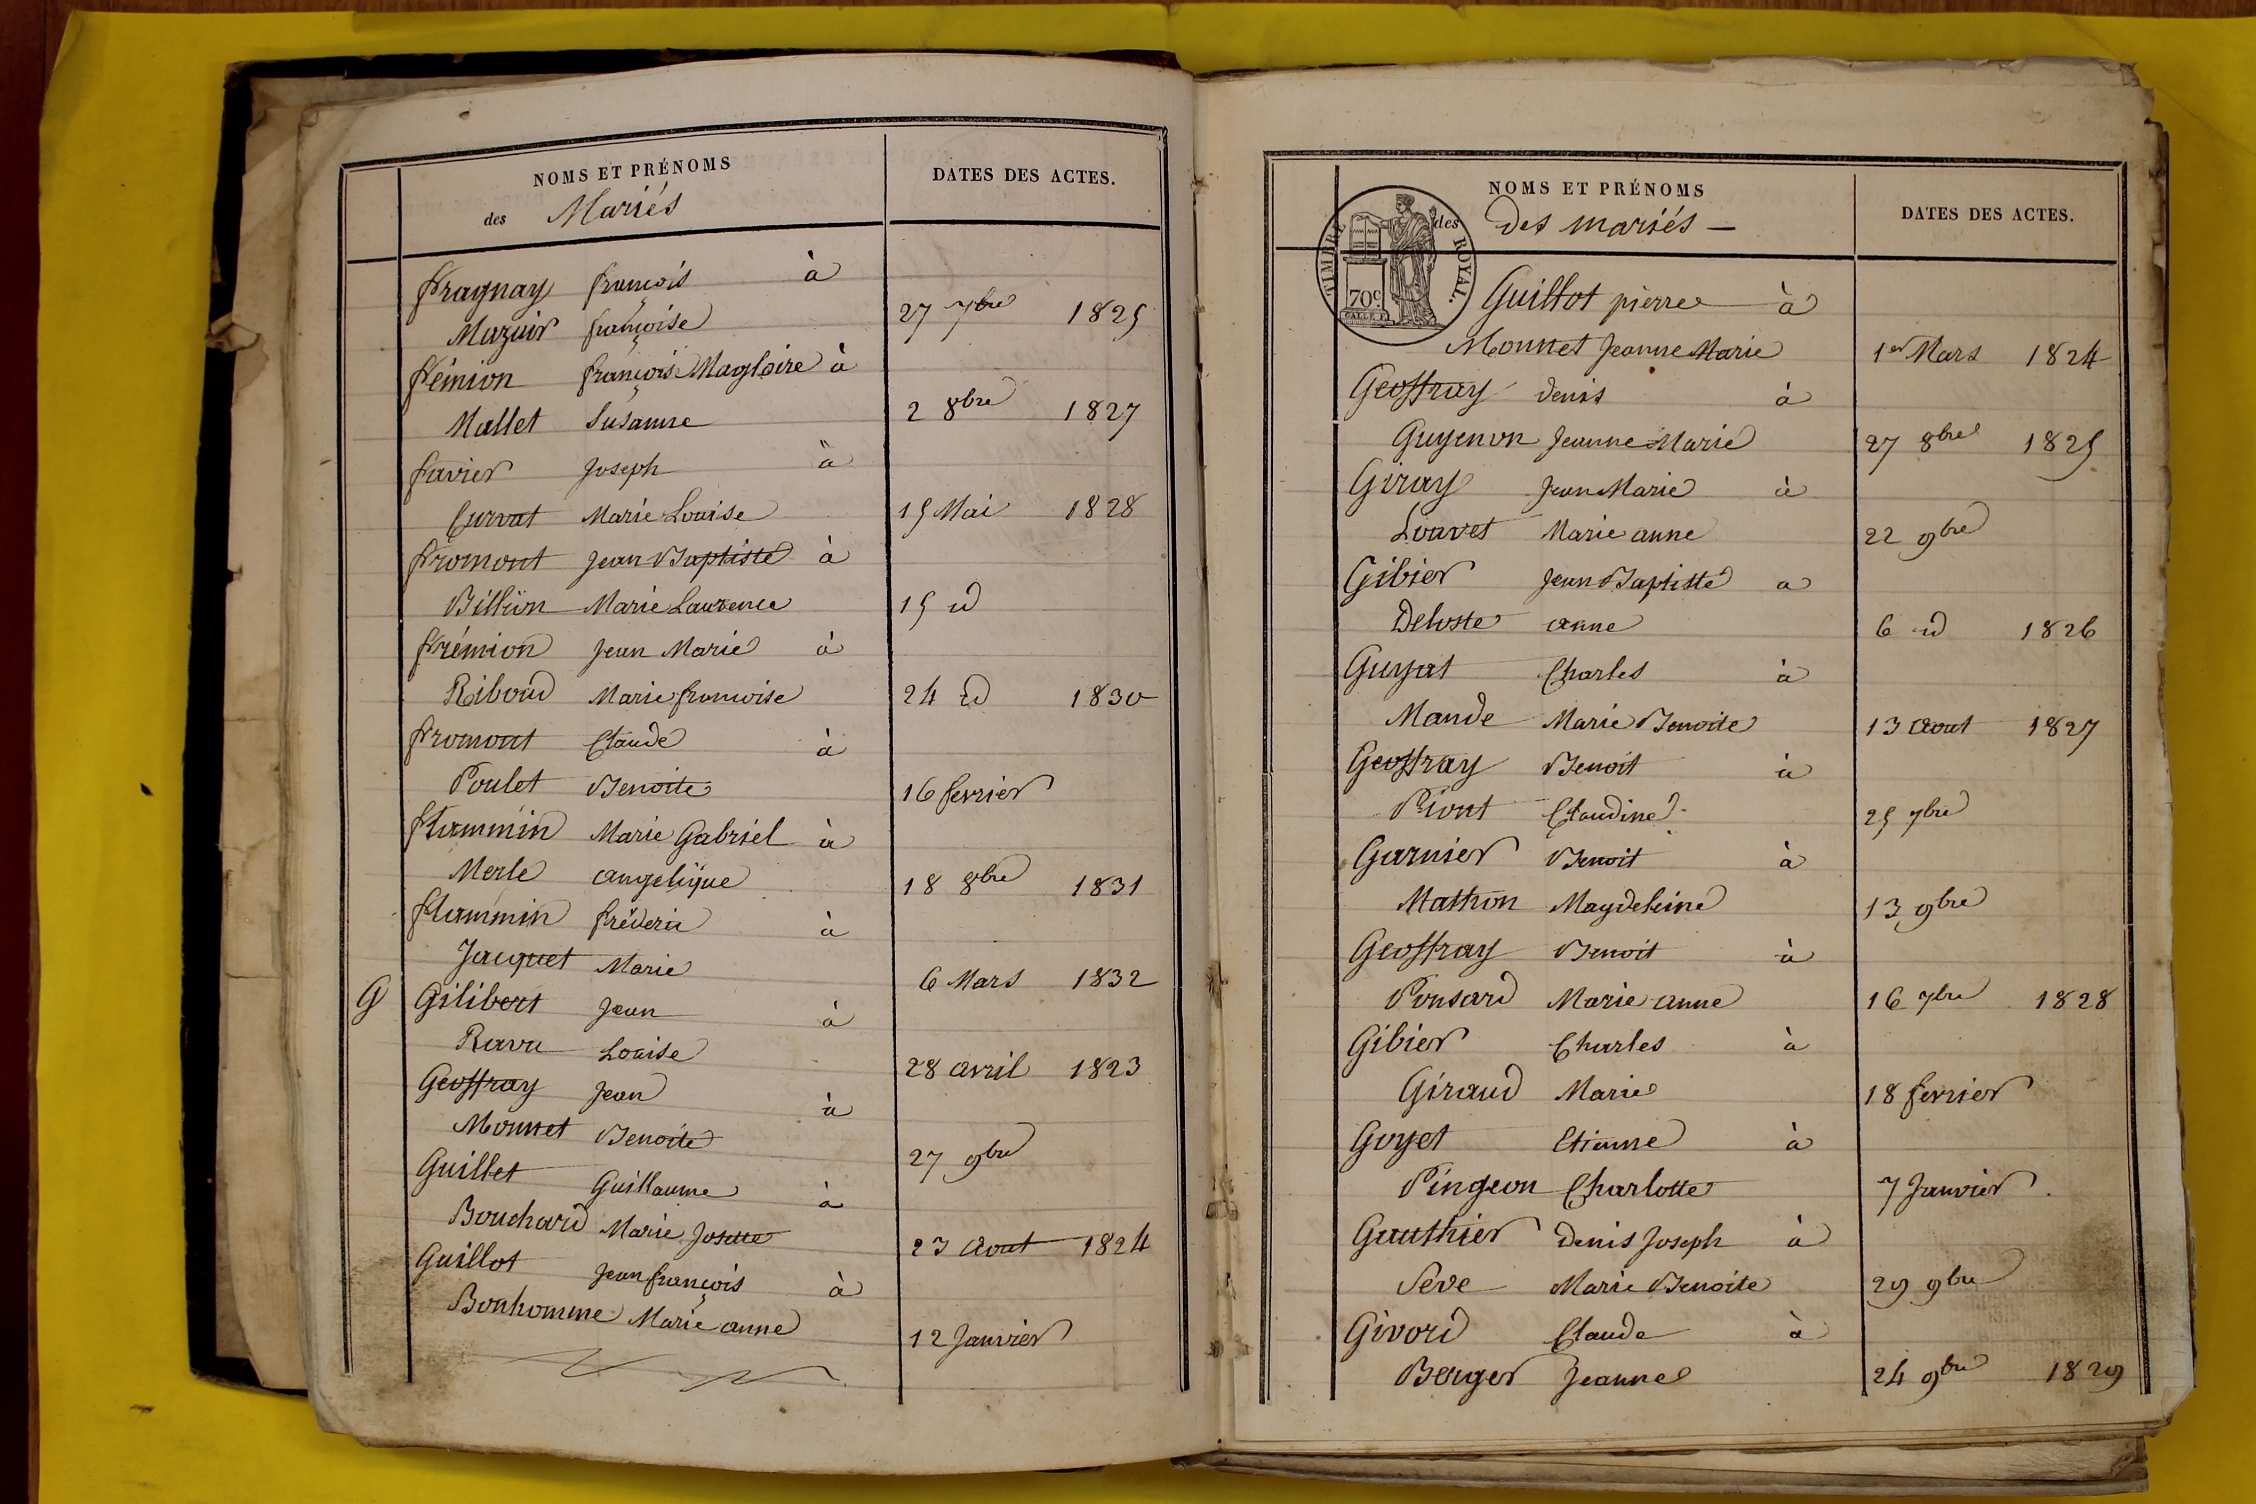 NOMS ET PRÉNOMS
des Mariés
DATES DES ACTES.
Fragnay françois à
Mazuir françoise 27 7bre 1825
Fémion françois Magloire à
Mallet Susanne 2 8bre 1827
Favier Joseph à
Curvat Marie Louise 15 Mai 1828
Fromont Jean Baptiste à
Billion Marie Laurence 15 id
Frémion Jean Marie à
Riboud Marie francoise 24 id 1830
Fromont Claude à
Poulet Benoite 16 fevrier
Flammin Marie Gabriel à
Merle angelique 18 8bre 1831
Flammin fréderic à
Jacquet Marie 6 Mars 1832
G Gilibert Jean à
Rava Louise 28 avril 1823
Geoffray Jean à
Monnet Benoite 27 9bre
Guillet Guillaume à
Bouchard Marie Josette 23 Aout 1824
Guillot Jean françois à
Bonhomme Marie anne 12 Janvier
NOMS ET PRÉNOMS
des
Des mariés —
DATES DES ACTES.
TIMBRE ROYAL.
70c.
Guillot pierre à
Monnet Jeanne Marie 1er Mars 1824
Geoffray denis à
Guyenon Jeanne Marie 27 8bre 1825
Giray Jean Marie à
Louvet Marie anne 22 9bre
Gibier Jean Baptiste a
Deloste anne 6 id 1826
Guyat Charles à
Mande Marie Benoite 13 Aout 1827
Geoffray Benoit à
Piont Claudine 25 7bre
Garnier Benoit à
Mathon Magdeleine 13 9bre
Geoffray Benoit à
Ponsard Marie anne 16 7bre 1828
Gibier Charles à
Giraud Marie 18 fevrier
Goyet Etienne à
Pingeon Charlotte 7 Janvier
Gauthier Denis Joseph à
Séve Marie Benoite 29 9bre
Givord Claude à
Berger Jeanne 24 9bre 1829